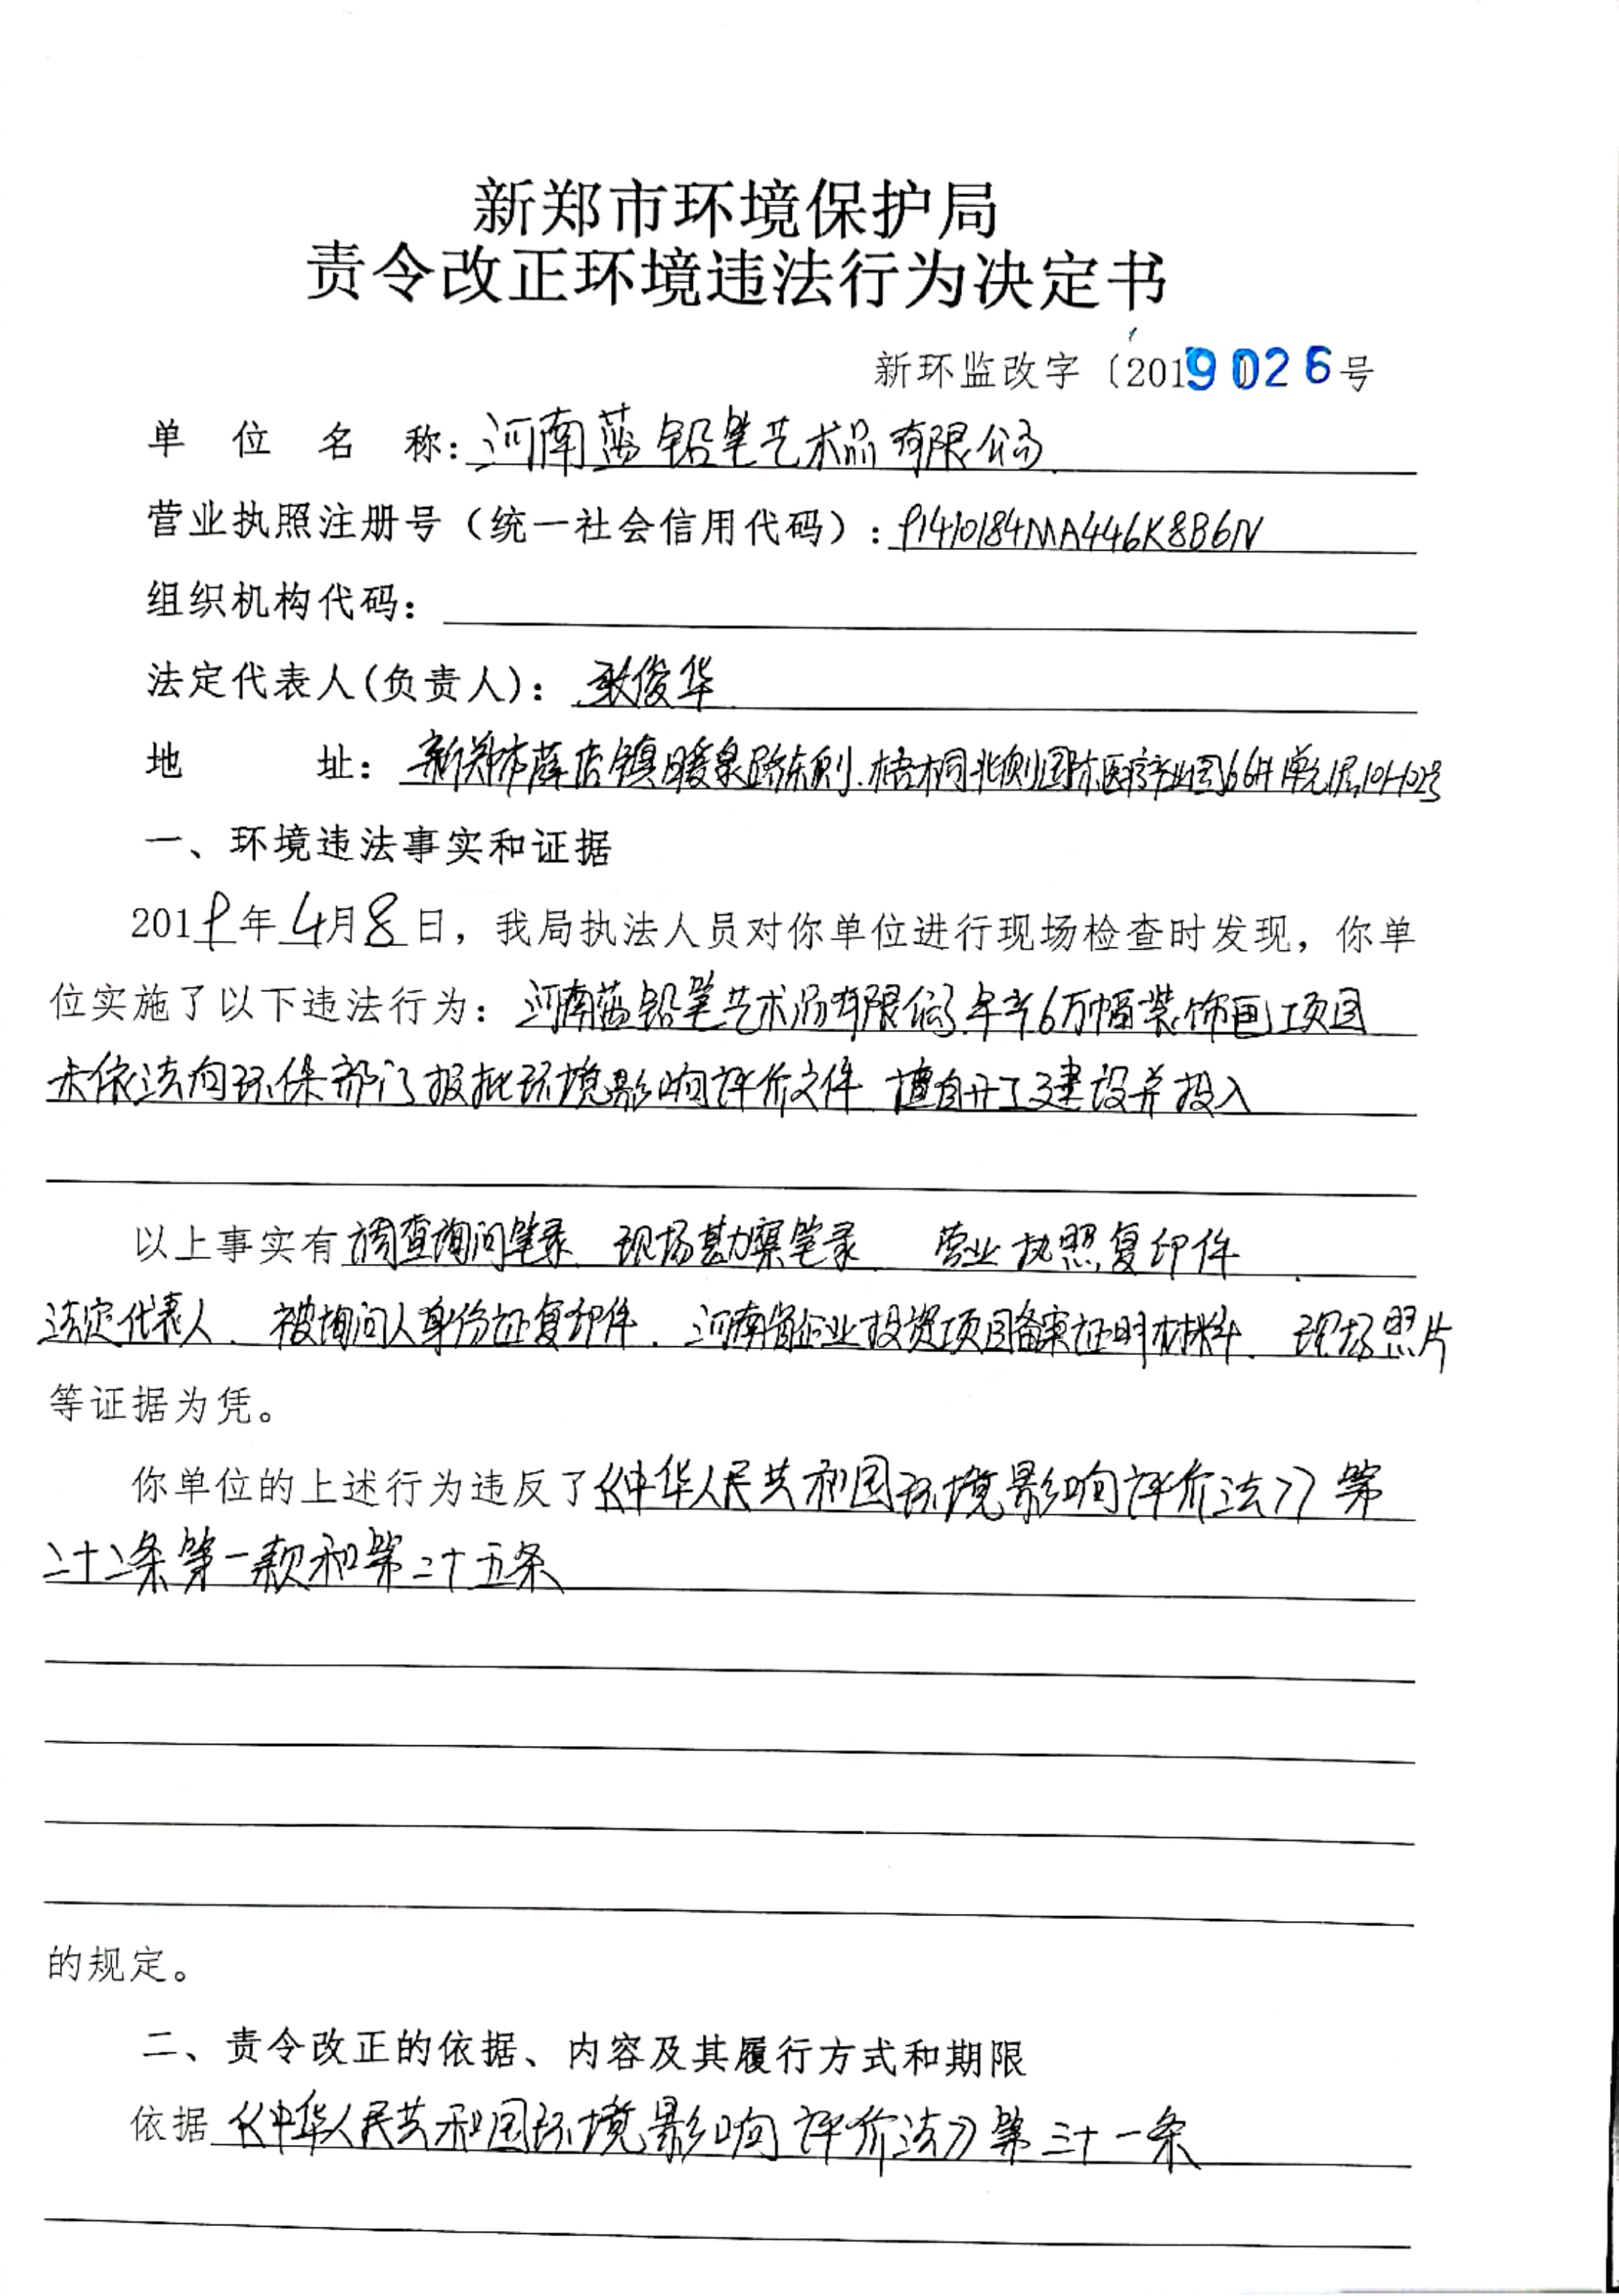 新郑市环境保护局
责令改正环境违法行为决定书
新环监改字〔2019026号
单位名称：河南蓝铅笔艺术品有限公司
营业执照注册号（统一社会信用代码）：91410184MA446K8B6N
组织机构代码：
法定代表人（负责人）：耿俊华
地址：新郑市薛店镇暖泉路东侧、梧桐北侧国际医疗产业园66#单元1层101-102号
一、环境违法事实和证据
2019年4月8日，我局执法人员对你单位进行现场检查时发现，你单
位实施了以下违法行为：河南蓝铅笔艺术品有限公司年产6万幅装饰画项目
未依法向环保部门报批环境影响评价文件 擅自开工建设并投入
以上事实有调查询问笔录、现场勘察笔录、营业执照复印件、
法定代表人、被询问人身份证复印件、河南省企业投资项目备案证明材料、现场照片
等证据为凭。
你单位的上述行为违反了《中华人民共和国环境影响评价法》第
二十二条第一款和第二十五条
的规定。
二、责令改正的依据、内容及其履行方式和期限
依据《中华人民共和国环境影响评价法》第三十一条